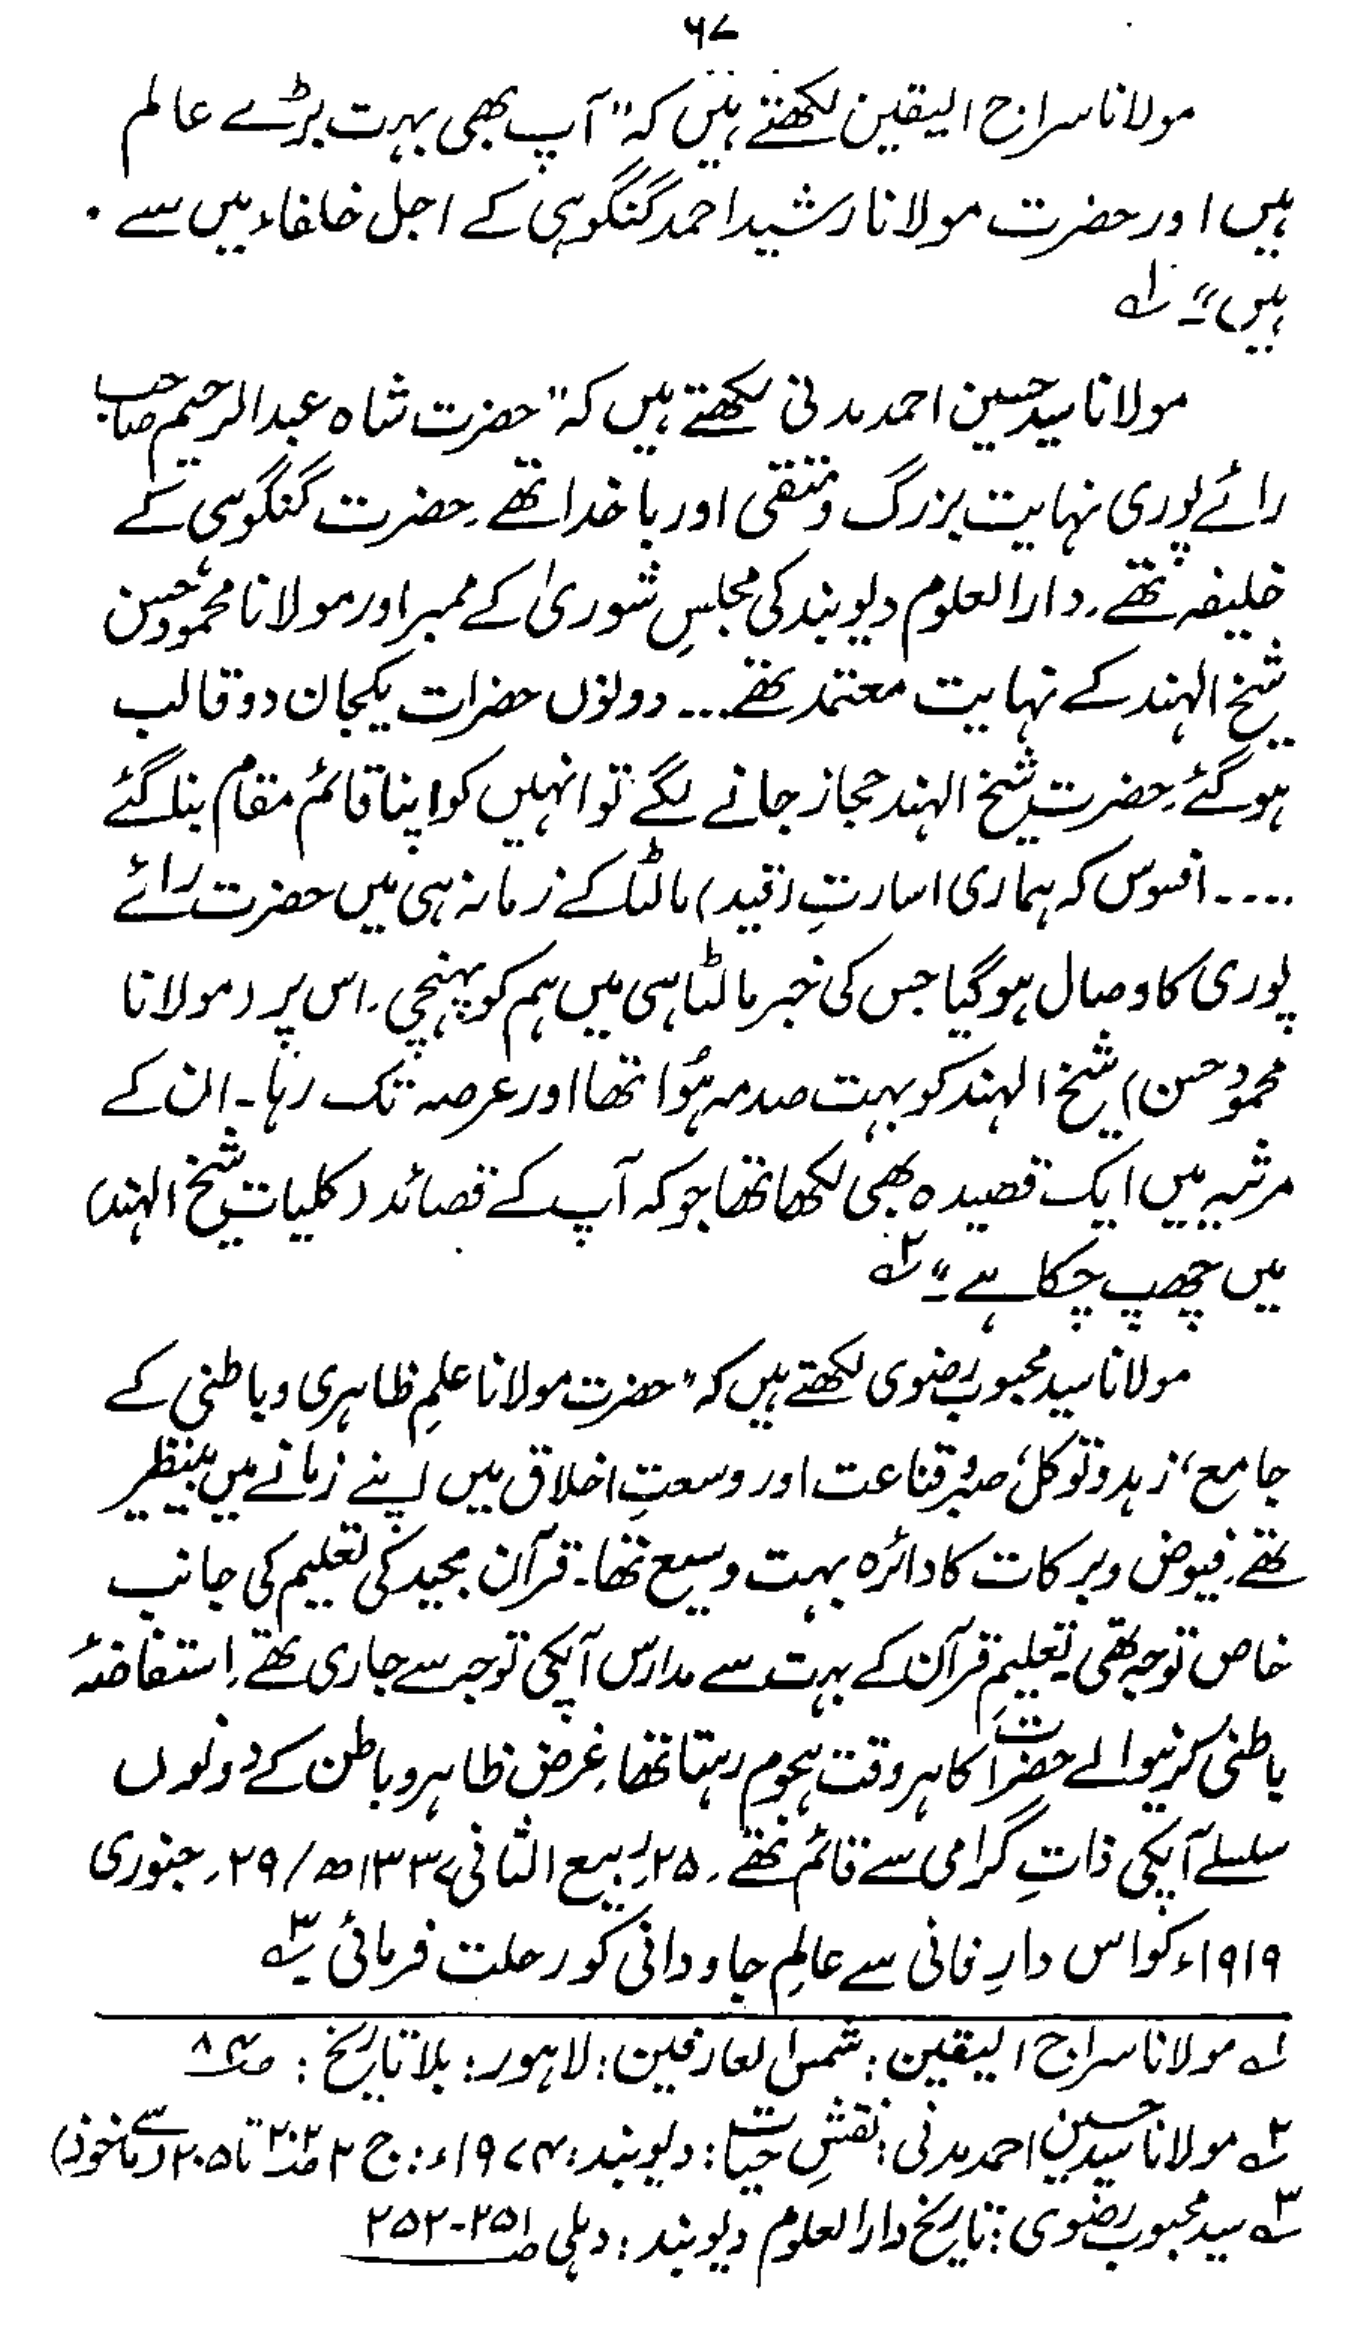 ۶۷
مولانا سراج الیقین لکھتے ہیں کہ "آپ بھی بہت بڑے عالم
ہیں اور حضرت مولانا رشید احمد گنگوہی کے اجل خلفاء میں سے
ہیں"۔ ۱؎
مولانا سید حسین احمد مدنی لکھتے ہیں کہ "حضرت شاہ عبدالرحیم صاحب
رائے پوری نہایت بزرگ و متقی اور باخدا تھے۔ حضرت گنگوہی کے
خلیفہ تھے۔ دارالعلوم دیوبند کی مجلسِ شوریٰ کے ممبر اور مولانا محمود حسن
شیخ الہند کے نہایت معتمد تھے ... دونوں حضرات یکجان دو قالب
ہو گئے۔ حضرت شیخ الہند حجاز جانے لگے تو انہیں کو اپنا قائم مقام بنا گئے
.... افسوس کہ ہماری اسارتِ (قید) مالٹا کے زمانہ ہی میں حضرت رائے
پوری کا وصال ہو گیا جس کی خبر مالٹا ہی میں ہم کو پہنچی۔ اس پر (مولانا
محمود حسن) شیخ الہند کو بہت صدمہ ہُوا تھا اور عرصہ تک رہا۔ ان کے
مرثیہ میں ایک قصیدہ بھی لکھا تھا جو کہ آپ کے قصائد (کلیات شیخ الہند)
میں چھپ چکا ہے"۔ ۲؎
مولانا سید محبوب رضوی لکھتے ہیں کہ "حضرت مولانا علمِ ظاہری و باطنی کے
جامع، زہد و توکل، صبر و قناعت اور وسعتِ اخلاق میں اپنے زمانے میں بینظیر
تھے۔ فیوض و برکات کا دائرہ بہت وسیع تھا۔ قرآن مجید کی تعلیم کی جانب
خاص توجہ تھی۔ تعلیمِ قرآن کے بہت سے مدارس آپکی توجہ سے جاری تھے۔ اِستفاضۂ
باطنی کرنیوالے حضرات کا ہر وقت ہجوم رہتا تھا۔ غرض ظاہر و باطن کے دونوں
سلسلے آپکی ذاتِ گرامی سے قائم تھے۔ ۲۵؍ ربیع الثانی ۱۳۳۷ھ / ۲۹؍ جنوری
۱۹۱۹ء کو اس دارِ فانی سے عالمِ جاودانی کو رحلت فرمائی۔ ۳؎
۱؎ مولانا سراج الیقین: شمس العارفین: لاہور: بلا تاریخ: صـ ۸۴
۲؎ مولانا سید حسین احمد مدنی: نقشِ حیات: دیوبند: ۱۹۷۴ء: ج ۲ صـ ۲۰۲ تا ۲۰۵ (سے ماخوذ)
۳؎ سید محبوب رضوی: تاریخ دارالعلوم دیوبند: دہلی صـ ۲۵۱-۲۵۲